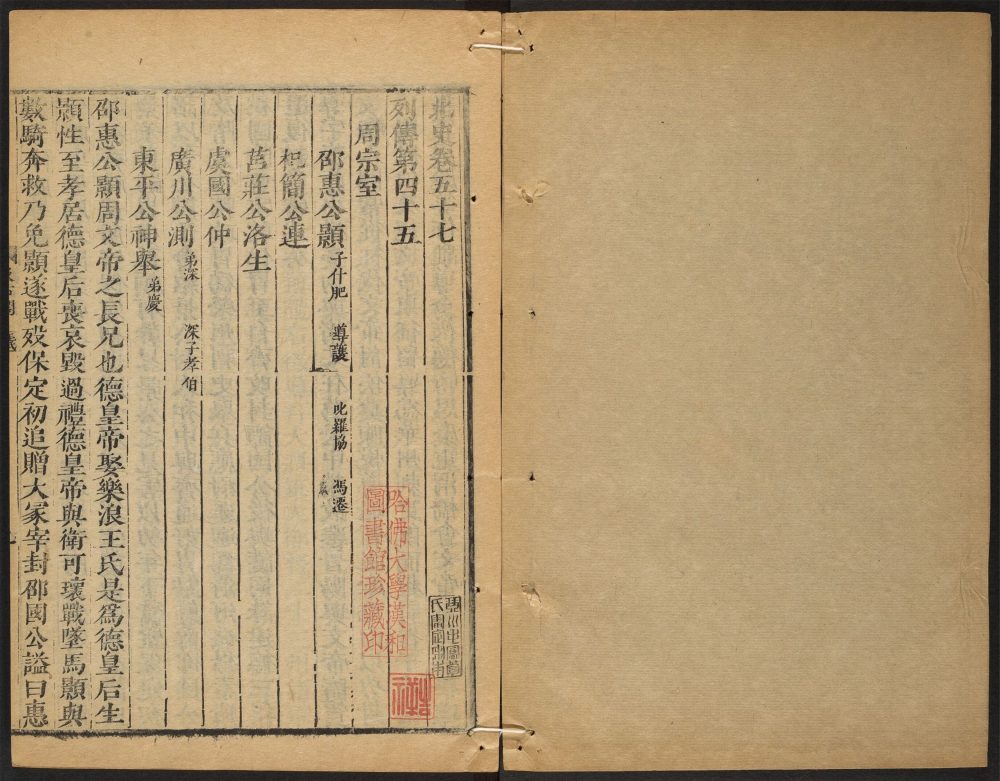 北史卷五十七
列傳第四十五
周宗室
邵惠公顥 子什肥 導 護 叱羅協 馮遷
杞簡公連
莒莊公洛生
虞國公仲
廣川公測 弟深 深子孝伯
東平公神舉 弟慶
邵惠公顥周文帝之長兄也德皇帝娶樂浪王氏是爲德皇后生
顥性至孝居德皇后喪哀毀過禮德皇帝與衛可瓌戰墜馬顥與
數騎奔救乃免顥遂戰歿保定初追贈大冢宰封邵國公謚曰惠
哈佛大學漢和
圖書館珍藏印